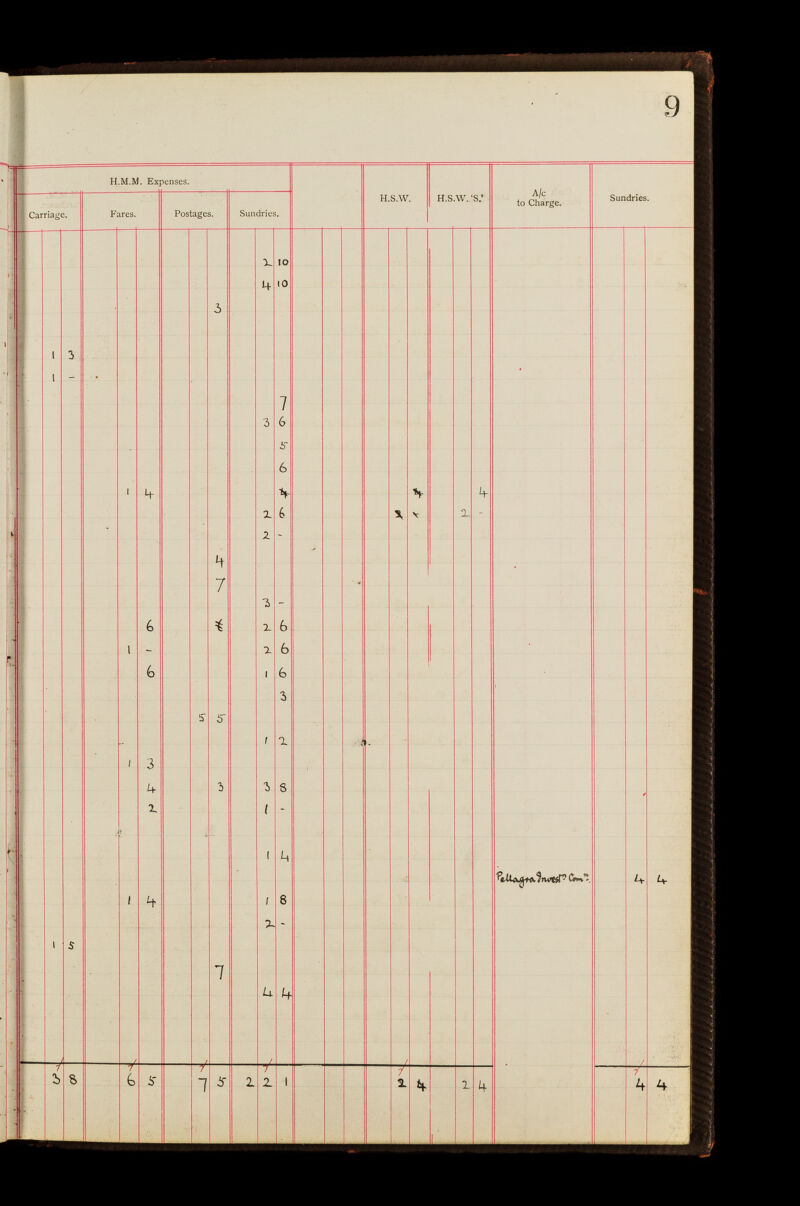 9
H.M.M. Expenses. H.S.W. H.S.W. 'S.' A/c to Charge. Sundries.
Carriage. Fares. Postages. Sundries.
2 10
4 10
3
1 3
1 -
7
3 6
5
6
1 4 4 4 4
2 6 2 2 -
2 -
4
7
3 -
6 2 6
1 - 2 6
6 1 6
3
5 5
1 2
1 3
4 3 3 8
2 1 -
1 4
Pellagra Investn Comtee. 4 4
1 4 1 8
2 -
1 5
7
4 4
3 8 6 5 7 5 2 2 1 2 4 2 4 4 4